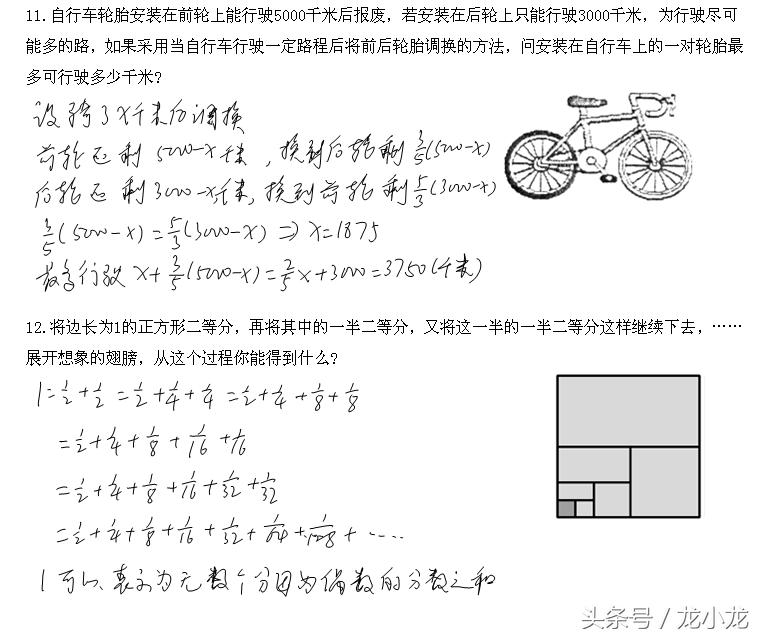 11.自行车轮胎安装在前轮上能行驶5000千米后报废，若安装在后轮上只能行驶3000千米，为行驶尽可
能多的路，如果采用当自行车行驶一定路程后将前后轮胎调换的方法，问安装在自行车上的一对轮胎最
多可行驶多少千米?
设骑了x千米后调换
前轮还剩5000-x千米，换到后轮剩3/5(5000-x)
后轮还剩3000-x千米，换到前轮剩5/3(3000-x)
3/5(5000-x)=5/3(3000-x)⇒x=1875
最多行驶x+3/5(5000-x)=2/5x+3000=3750(千米)
12.将边长为1的正方形二等分，再将其中的一半二等分，又将这一半的一半二等分这样继续下去，……
展开想象的翅膀，从这个过程你能得到什么?
1=1/2+1/2=1/2+1/4+1/4=1/2+1/4+1/8+1/8
=1/2+1/4+1/8+1/16+1/16
=1/2+1/4+1/8+1/16+1/32+1/32
=1/2+1/4+1/8+1/16+1/32+1/64+1/128+……
1可以表示为无数个分母为偶数的分数之和
头条号 / 龙小龙